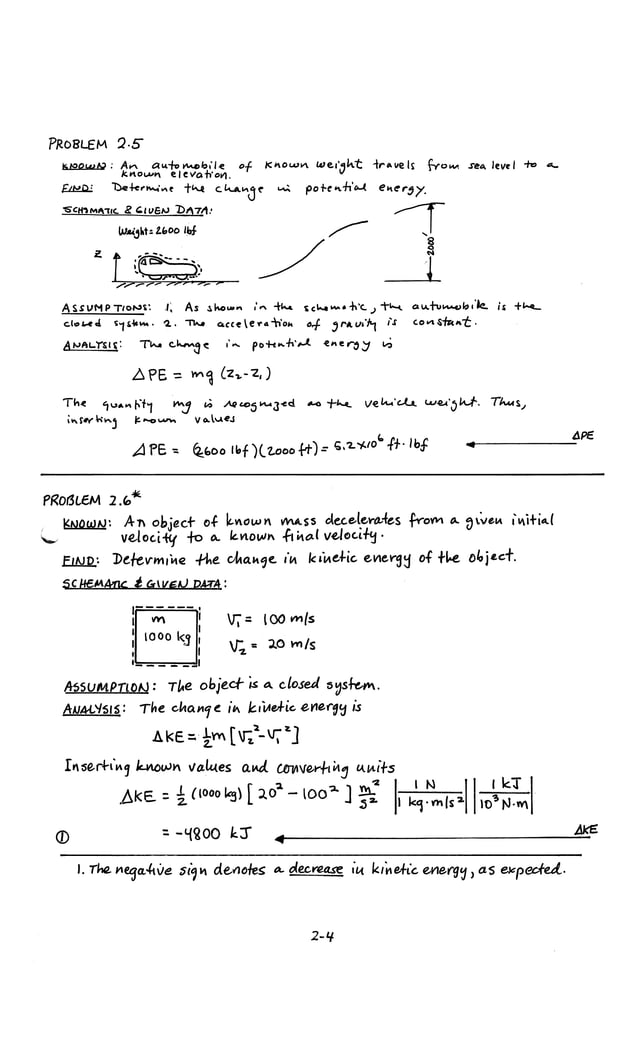 PROBLEM 2.5
KNOWN: An automobile of known weight travels from sea level to a
known elevation.
FIND: Determine the change in potential energy.
SCHEMATIC & GIVEN DATA:
Weight = 2600 lbf
Z
2000'
ASSUMPTIONS: 1. As shown in the schematic, the automobile is the
closed system. 2. The acceleration of gravity is constant.
ANALYSIS: The change in potential energy is
ΔPE = mg (Z₂-Z₁)
The quantity mg is recognized as the vehicle weight. Thus,
inserting known values
ΔPE = (2600 lbf)(2000 ft) = 5.2×10⁶ ft·lbf
ΔPE
PROBLEM 2.6*
KNOWN: An object of known mass decelerates from a given initial
velocity to a known final velocity.
FIND: Determine the change in kinetic energy of the object.
SCHEMATIC & GIVEN DATA:
m
1000 kg
V₁ = 100 m/s
V₂ = 20 m/s
ASSUMPTION: The object is a closed system.
ANALYSIS: The change in kinetic energy is
ΔKE = ½m[V₂²-V₁²]
Inserting known values and converting units
ΔKE = ½ (1000 kg) [20² - 100²] m²/s² |1 N / 1 kg·m/s²| |1 kJ / 10³ N·m|
① = -4800 kJ
ΔKE
1. The negative sign denotes a decrease in kinetic energy, as expected.
2-4